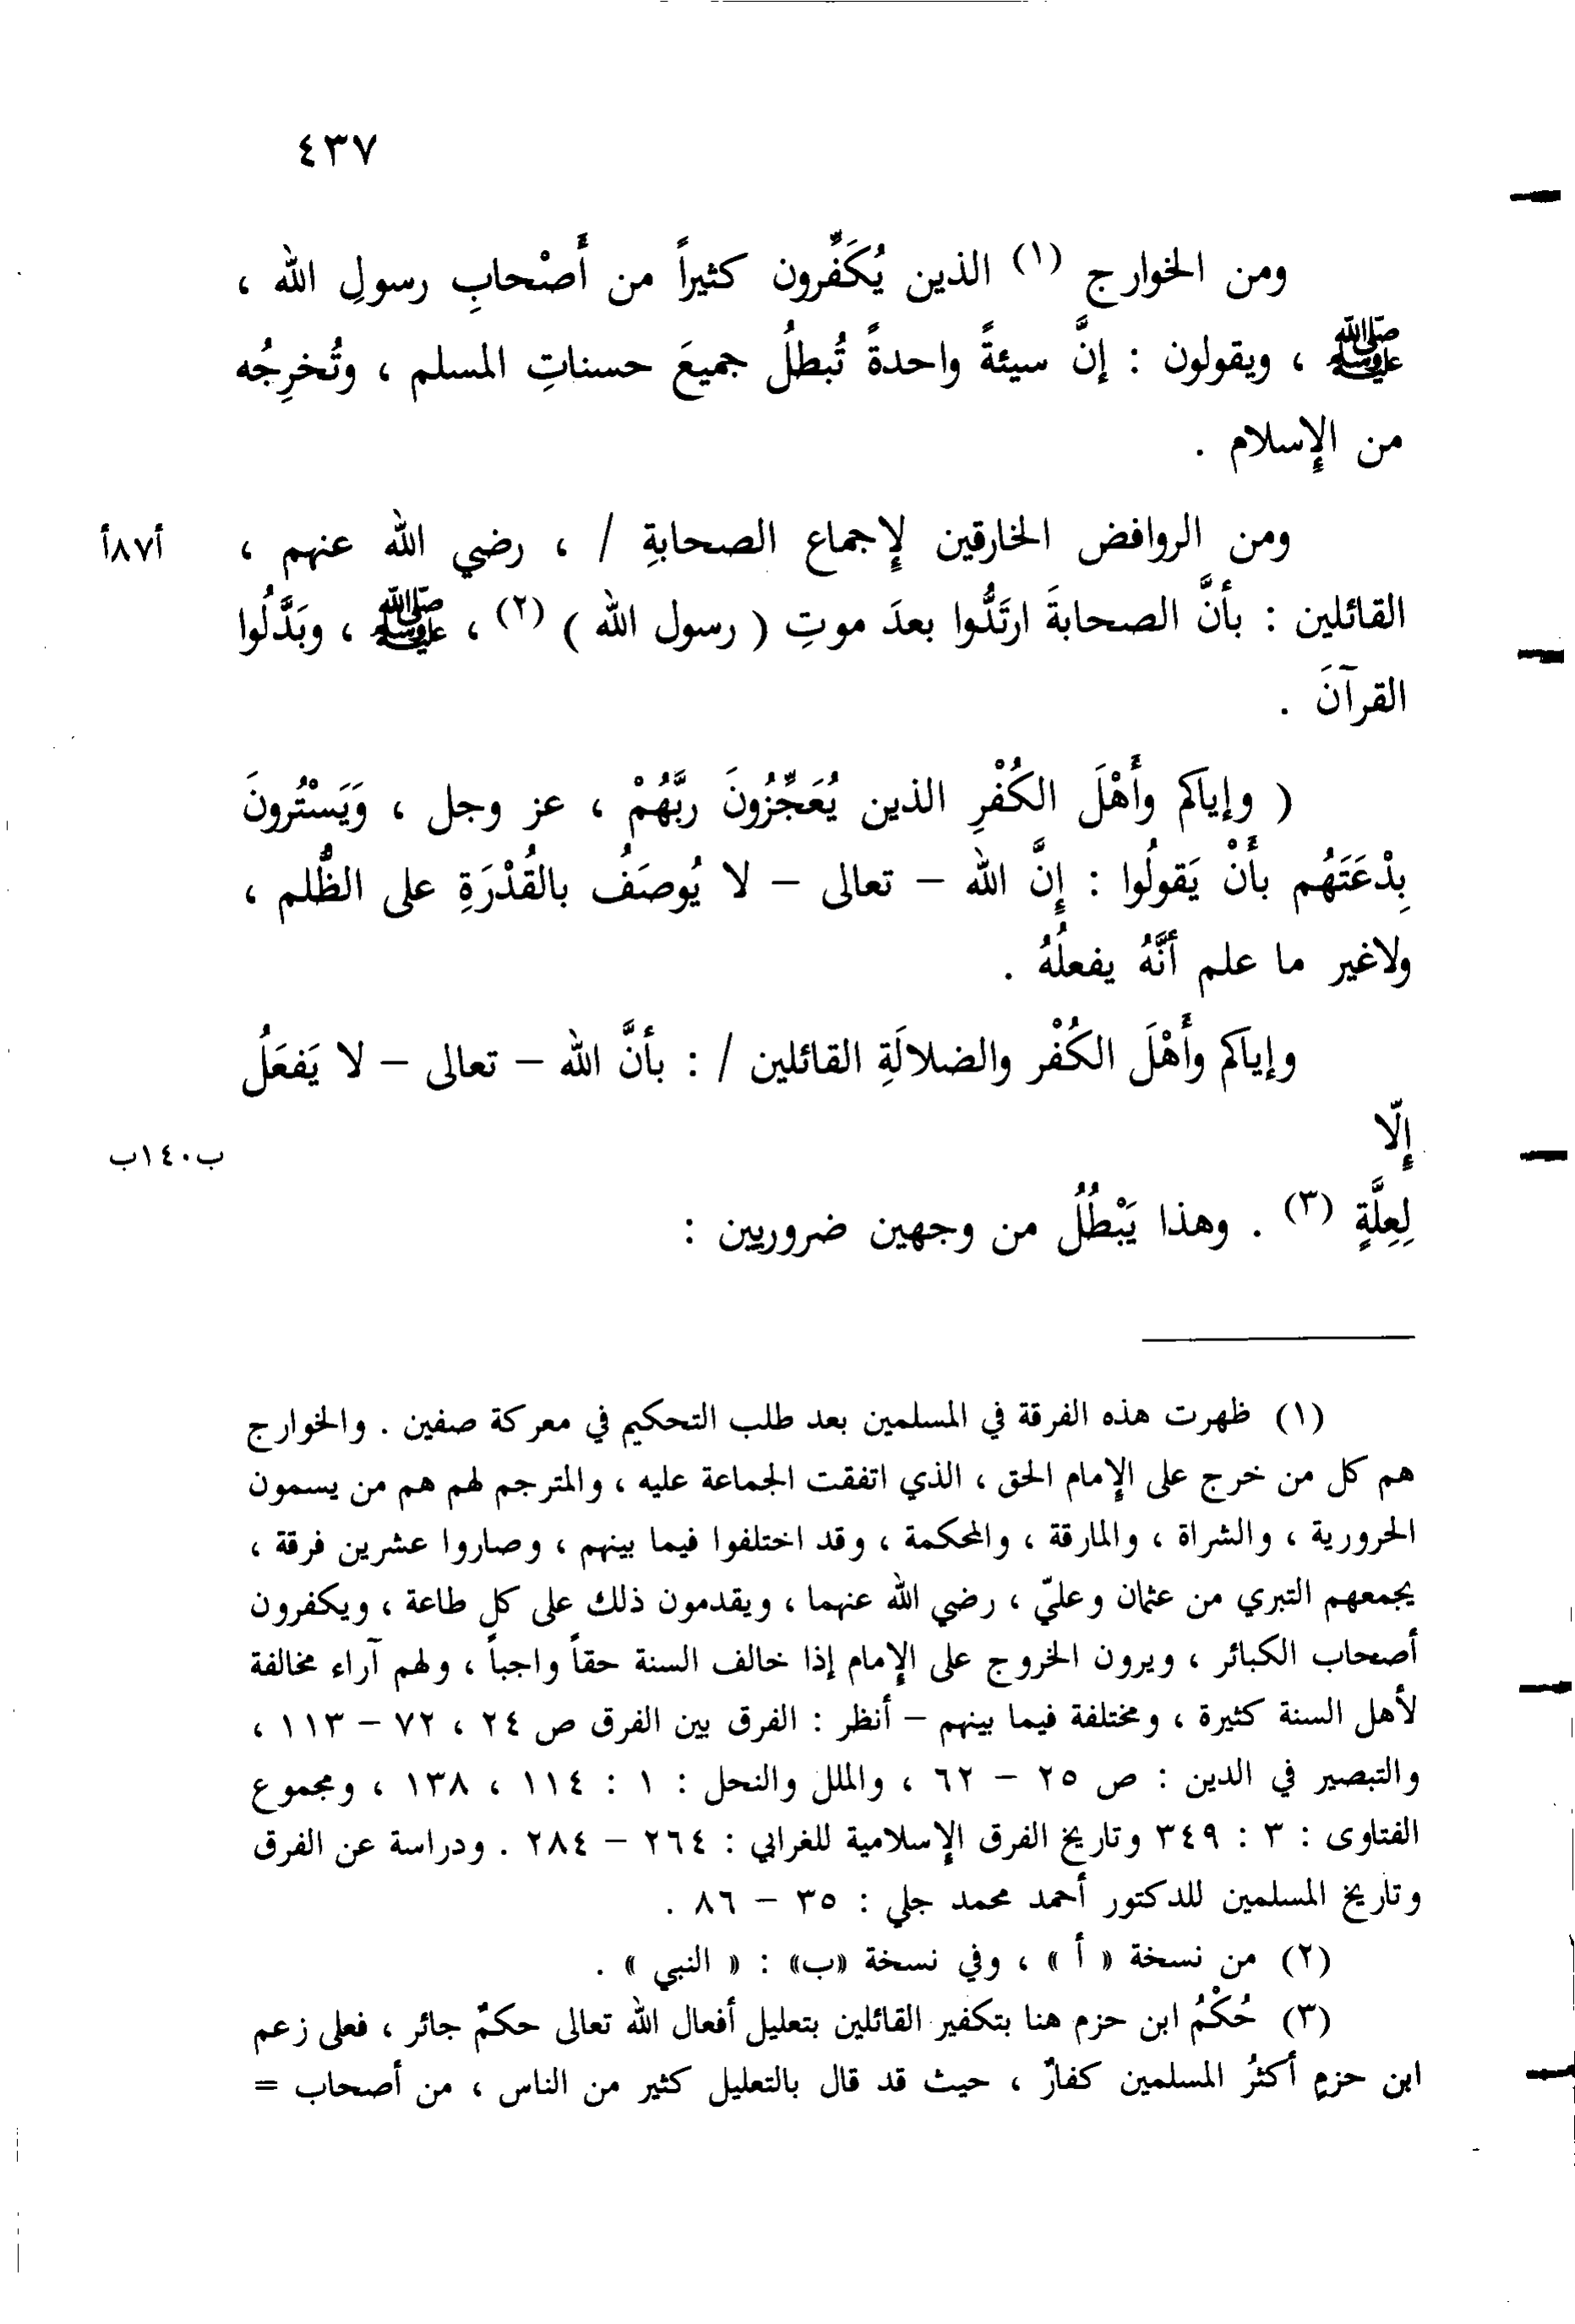 ٤٣٧
ومن الخوارج (١) الذين يُكَفِّرون كثيراً من أَصْحابِ رسولِ الله ،
ﷺ ، ويقولون : إنَّ سيئةً واحدةً تُبطلُ جميعَ حسناتِ المسلم ، وتُخرِجُه
من الإِسلام .
ومن الروافض الخارقين لإِجماع الصحابةِ / ، رضي الله عنهم ،
أ٨٧أ
القائلين : بأنَّ الصحابةَ ارتَدُّوا بعدَ موتِ ( رسول الله ) (٢) ، ﷺ ، وبَدَّلُوا
القرآنَ .
( وإياكم وأَهْلَ الكُفْرِ الذين يُعَجِّزُونَ ربَّهُمْ ، عز وجل ، وَيَسْتُرونَ
بِدْعَتَهُم بأَنْ يَقولُوا : إِنَّ الله – تعالى – لا يُوصَفُ بالقُدْرَةِ على الظُّلم ،
ولاغير ما علم أنَّهُ يفعلُهُ .
وإياكم وأَهْلَ الكُفْر والضلالَةِ القائلين / : بأنَّ الله – تعالى – لا يَفعَلُ
إِلّا
ب١٤٠ب
لِعِلَّةٍ (٣) . وهذا يَبْطُلُ من وجهين ضروريين :
(١) ظهرت هذه الفرقة في المسلمين بعد طلب التحكيم في معركة صفين . والخوارج
هم كل من خرج على الإِمام الحق ، الذي اتفقت الجماعة عليه ، والمترجم لهم هم من يسمون
الحرورية ، والشراة ، والمارقة ، والمحكمة ، وقد اختلفوا فيما بينهم ، وصاروا عشرين فرقة ،
يجمعهم التبري من عثمان وعليّ ، رضي الله عنهما ، ويقدمون ذلك على كل طاعة ، ويكفرون
أصحاب الكبائر ، ويرون الخروج على الإِمام إذا خالف السنة حقاً واجباً ، ولهم آراء مخالفة
لأهل السنة كثيرة ، ومختلفة فيما بينهم – أنظر : الفرق بين الفرق ص ٢٤ ، ٧٢ – ١١٣ ،
والتبصير في الدين : ص ٢٥ – ٦٢ ، والملل والنحل : ١ : ١١٤ ، ١٣٨ ، ومجموع
الفتاوى : ٣ : ٣٤٩ وتاريخ الفرق الإِسلامية للغرابي : ٢٦٤ – ٢٨٤ . ودراسة عن الفرق
وتاريخ المسلمين للدكتور أحمد محمد جلي : ٣٥ – ٨٦ .
(٢) من نسخة « أ » ، وفي نسخة «ب» : « النبي » .
(٣) حُكْمُ ابن حزم هنا بتكفير القائلين بتعليل أفعال الله تعالى حكمٌ جائر ، فعلى زعم
ابن حزمٍ أكثرُ المسلمين كفارٌ ، حيث قد قال بالتعليل كثير من الناس ، من أصحاب =